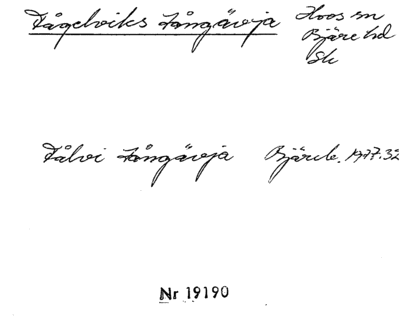 Fågelviks Långäveja Hoos sn
Bjäre hd
Sk
Fålvi Långäveja Bjärek. 1977.32
Nr 19190